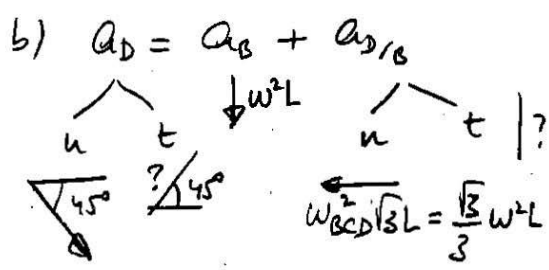 b) a_D = a_B + a_{D/B}
↓ ω²L
n t n t | ?
45° ? 45° ← ω_{BCD}² √3L = √3/3 ω²L